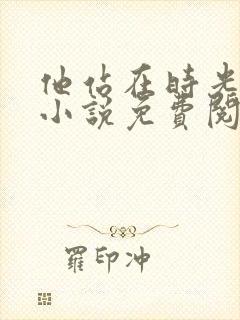 他佔在時光
小說免費閱
羅印沖